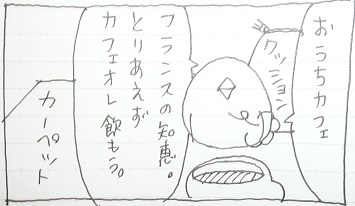 おうちカフェ
クッション
フランスの知恵。
とりあえず
カフェオレ飲もう。
カーペット